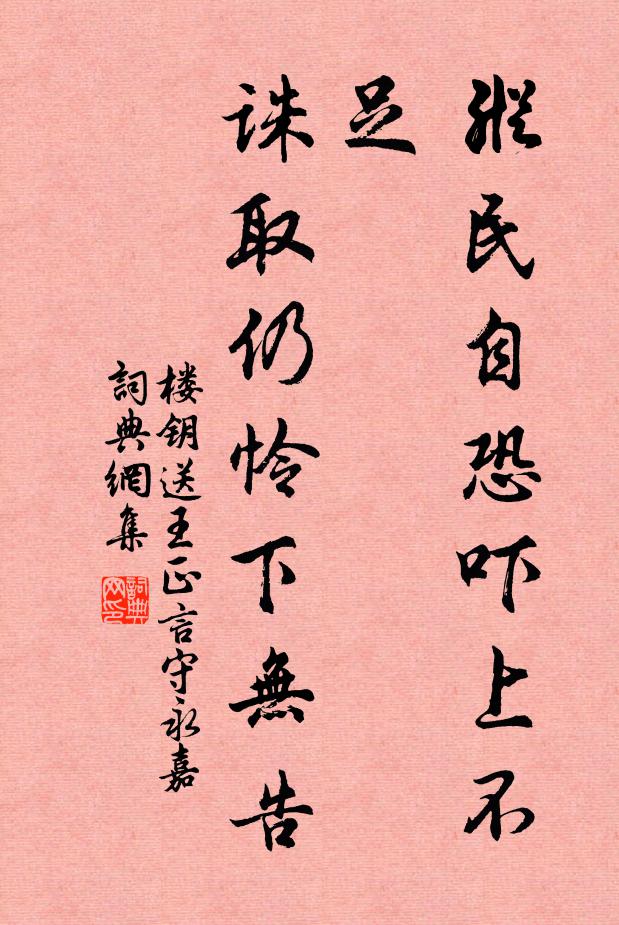 縱民自恐吓上不
足
誅取仍怜下無告
楼钥送王正言守永嘉
詞典網集
詞典網印